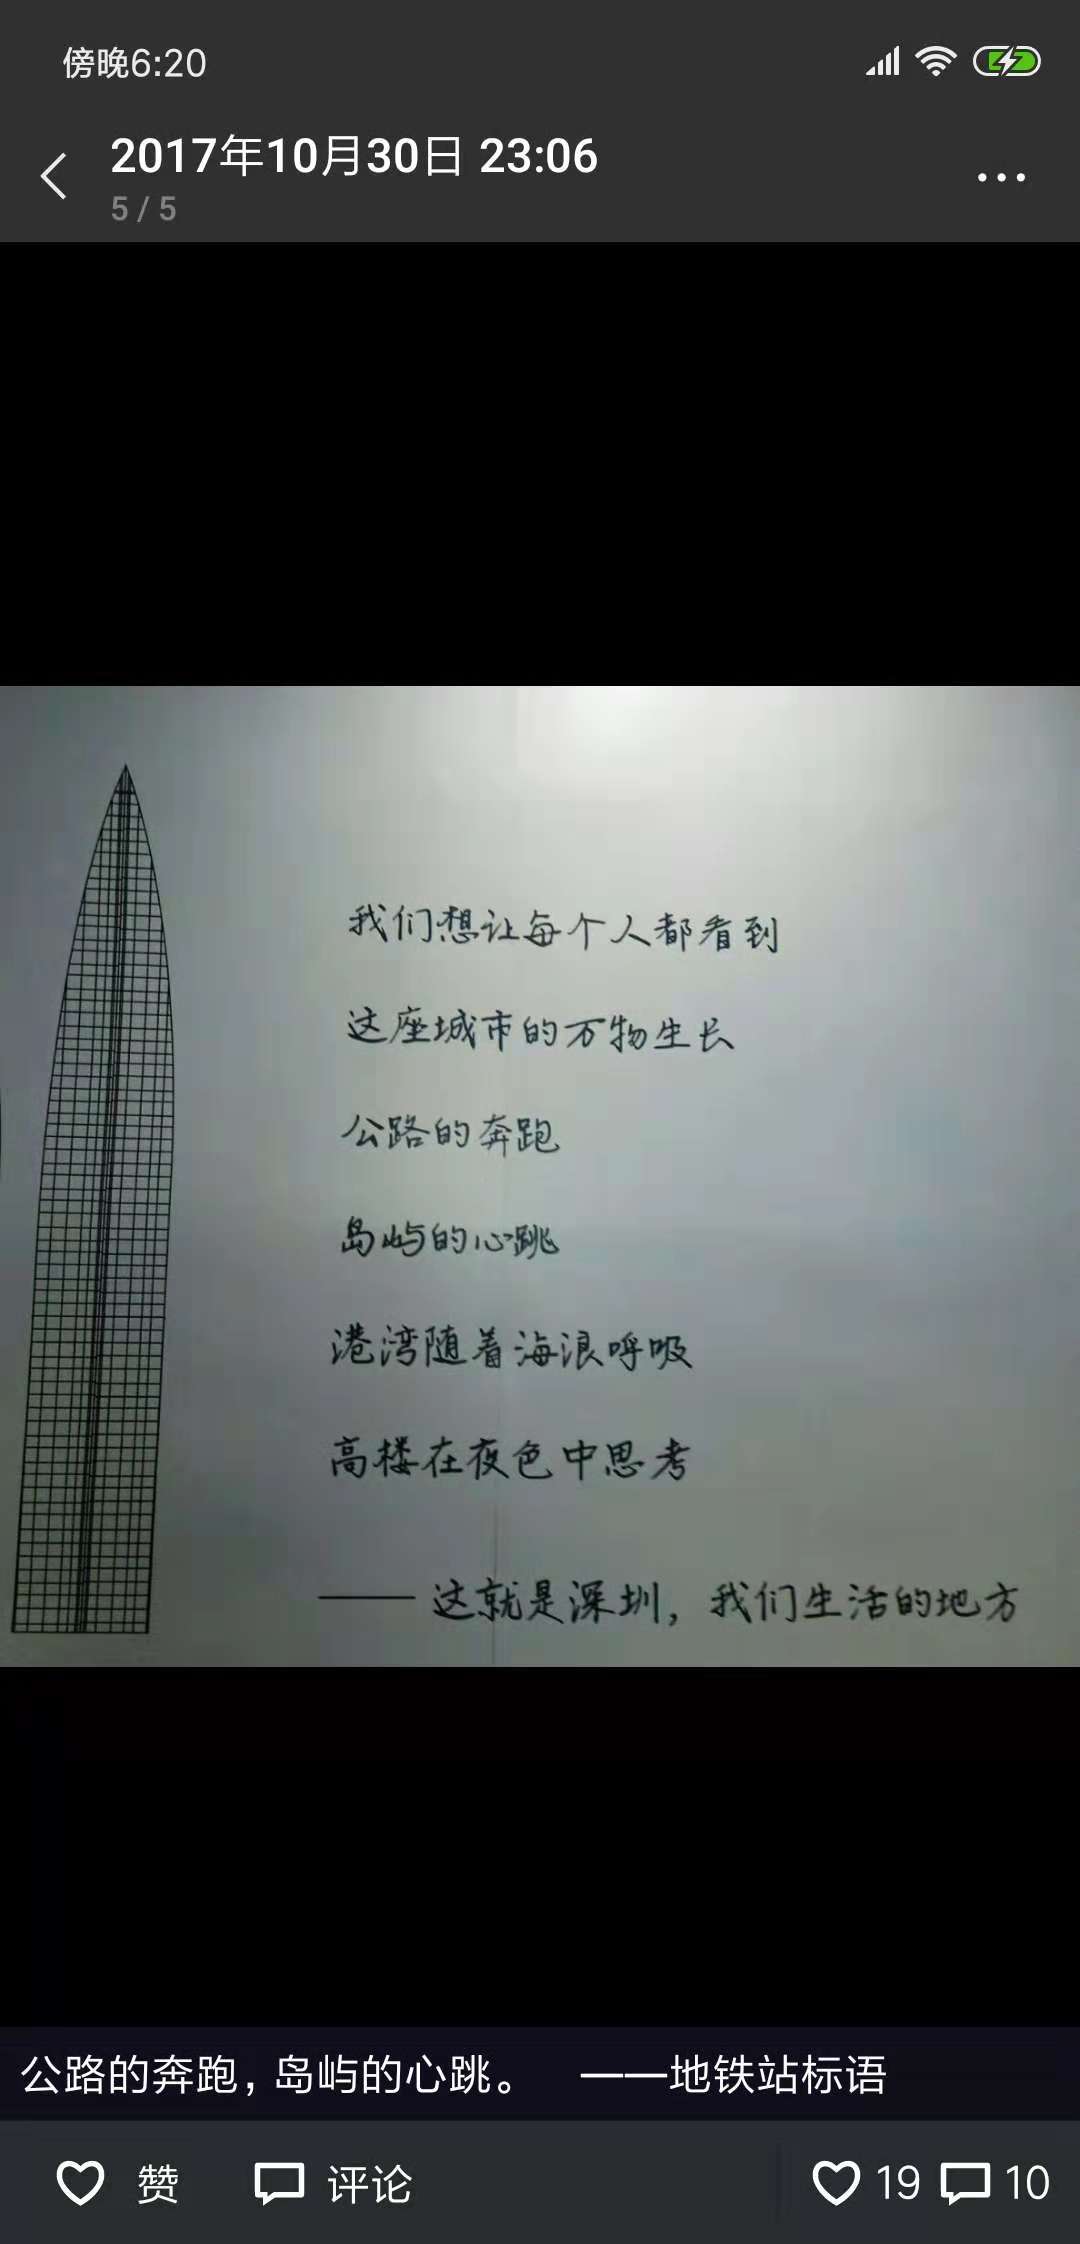 傍晚6:20
2017年10月30日 23:06
5 / 5
我们想让每个人都看到
这座城市的万物生长
公路的奔跑
岛屿的心跳
港湾随着海浪呼吸
高楼在夜色中思考
——这就是深圳，我们生活的地方
公路的奔跑，岛屿的心跳。 ——地铁站标语
赞 评论 19 10